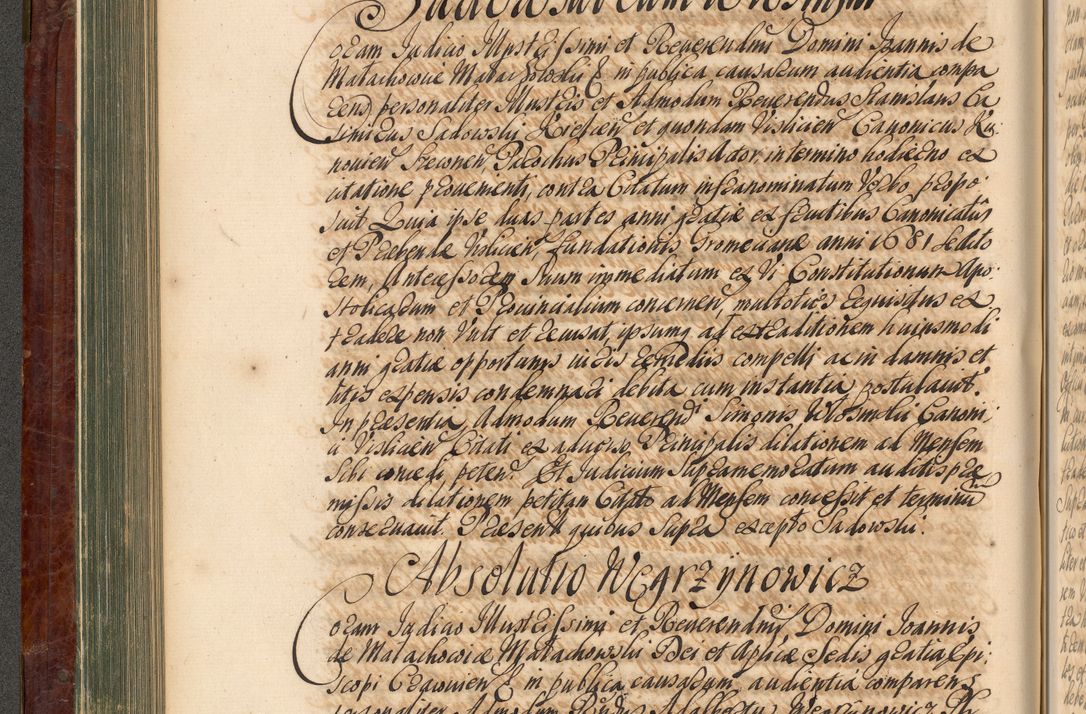 Coram Judicio Illustrissimi et Reverendmi Domini Joannis de
Małachowice Małachowski &c in publica causarum audientia compa
rens personaliter Illustris et Admodum Reverendus Stanislaus Ca
simirus Sadowski Kielcien et quondam Vislicien Canonicus
Parochus Principalis Actor in termino hodierno ex
citatione provenienti, contra Citatum infranominatum Verbo propo
suit Quia ipse duas partes anni gratiæ ex fructibus Canonicatûs
et Præbendæ Vislicien, Fundationis Gromecianæ anni 1681 sedito
rem, Antecessorem suum immediatum ex Vi Constitutionum Apo
stolicarum et Provincialium concernen, multoties requisitus ex
tradere non Vult et recusat, ipsumq ad extraditionem hujusmodi
anni gratiæ opportunis juris remediis compelli ac in damnis et
litis expensis condemnari debita cum instantia postulavit.
In præsentia Admodum Reverendi Simonis Canoni
ci Vislicien Citati ex adverso Principalis dilationem ad Mensem
sibi concedi peten. Et Judicium supramemoratum auditis præ
missis dilationem petitam Citato ad Mensem concessit et terminum
conservavit. Præsent quibus supra excepto Sadowski.
Absolutio Węgrzynowicz
Coram Judicio Illustrissimi et Reverendmi Domini Joannis
de Małachowice Małachowski Dei et Aplicæ Sedis gratia Epi:
scopi Cracovien &c in publica causarum audientia comparens
personaliter Admodum Rndus Adalbertus Węgrzynowicz